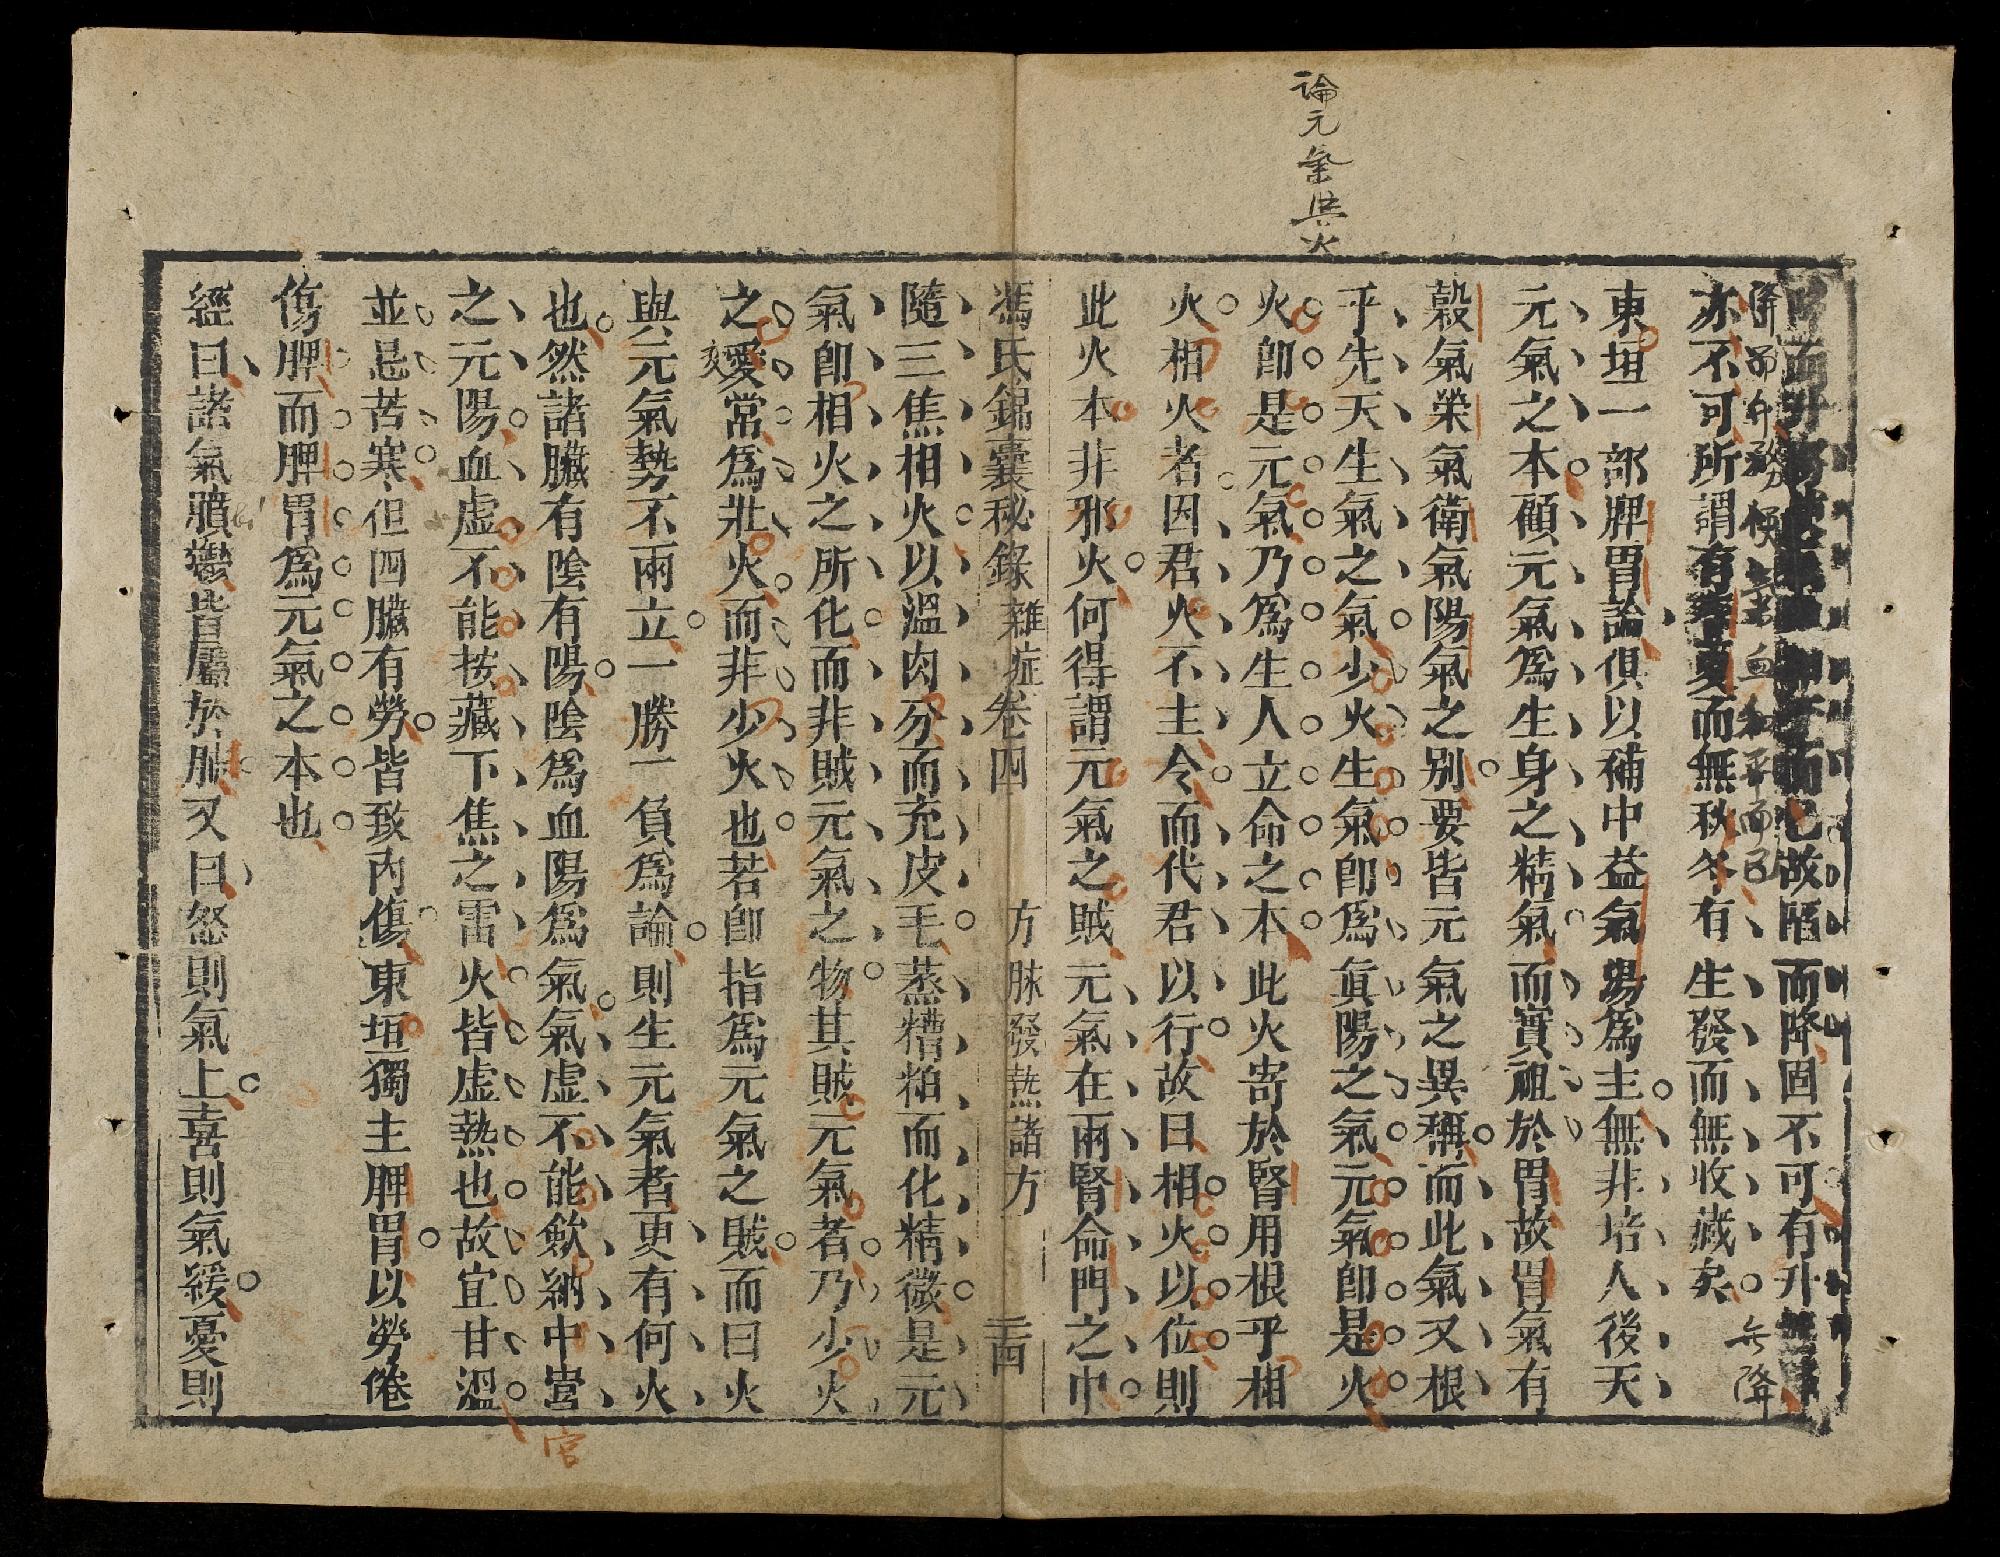 论元氣與火
降而升發候無者血和平而已
而已故陷而降固不可有升
亦不可所謂有春夏而無秋冬有生發而無收藏矣
無降
東垣一部脾胃論俱以補中益氣湯為主無非培人後天
元氣之本顧元氣為生身之精氣而實祖於胃故胃氣有
穀氣榮氣衛氣陽氣之別要皆元氣之異稱而此氣又根
乎先天生氣之氣少火生氣卽為眞陽之氣元氣卽是火
火卽是元氣乃為生人立命之本此火寄於腎用根乎相
火相火者因君火不主令而代君以行故曰相火以位則
此火本非邪火何得謂元氣之賊元氣在兩腎命門之中
馮氏錦囊秘錄 雜症卷四 方脉發熱諸方 二十四
隨三焦相火以溫肉分而充皮毛蒸糟粕而化精微是元
氣卽相火之所化而非賊元氣之物其賊元氣者乃少火
之愛常為壯火而非少火也若卽指為元氣之賊而曰火
变
與元氣勢不兩立一勝一負為論則生元氣者更有何火
也然諸臟有陰有陽陰為血陽為氣氣虛不能歛納中宮
宮
之元陽血虛不能按藏下焦之雷火皆虛熱也故宜甘溫
並忌苦寒但四臟有勞皆致內傷東垣獨主脾胃以勞倦
傷脾而脾胃為元氣之本也
經曰諸氣膹鬱皆屬於肺又曰怒則氣上喜則氣緩憂則